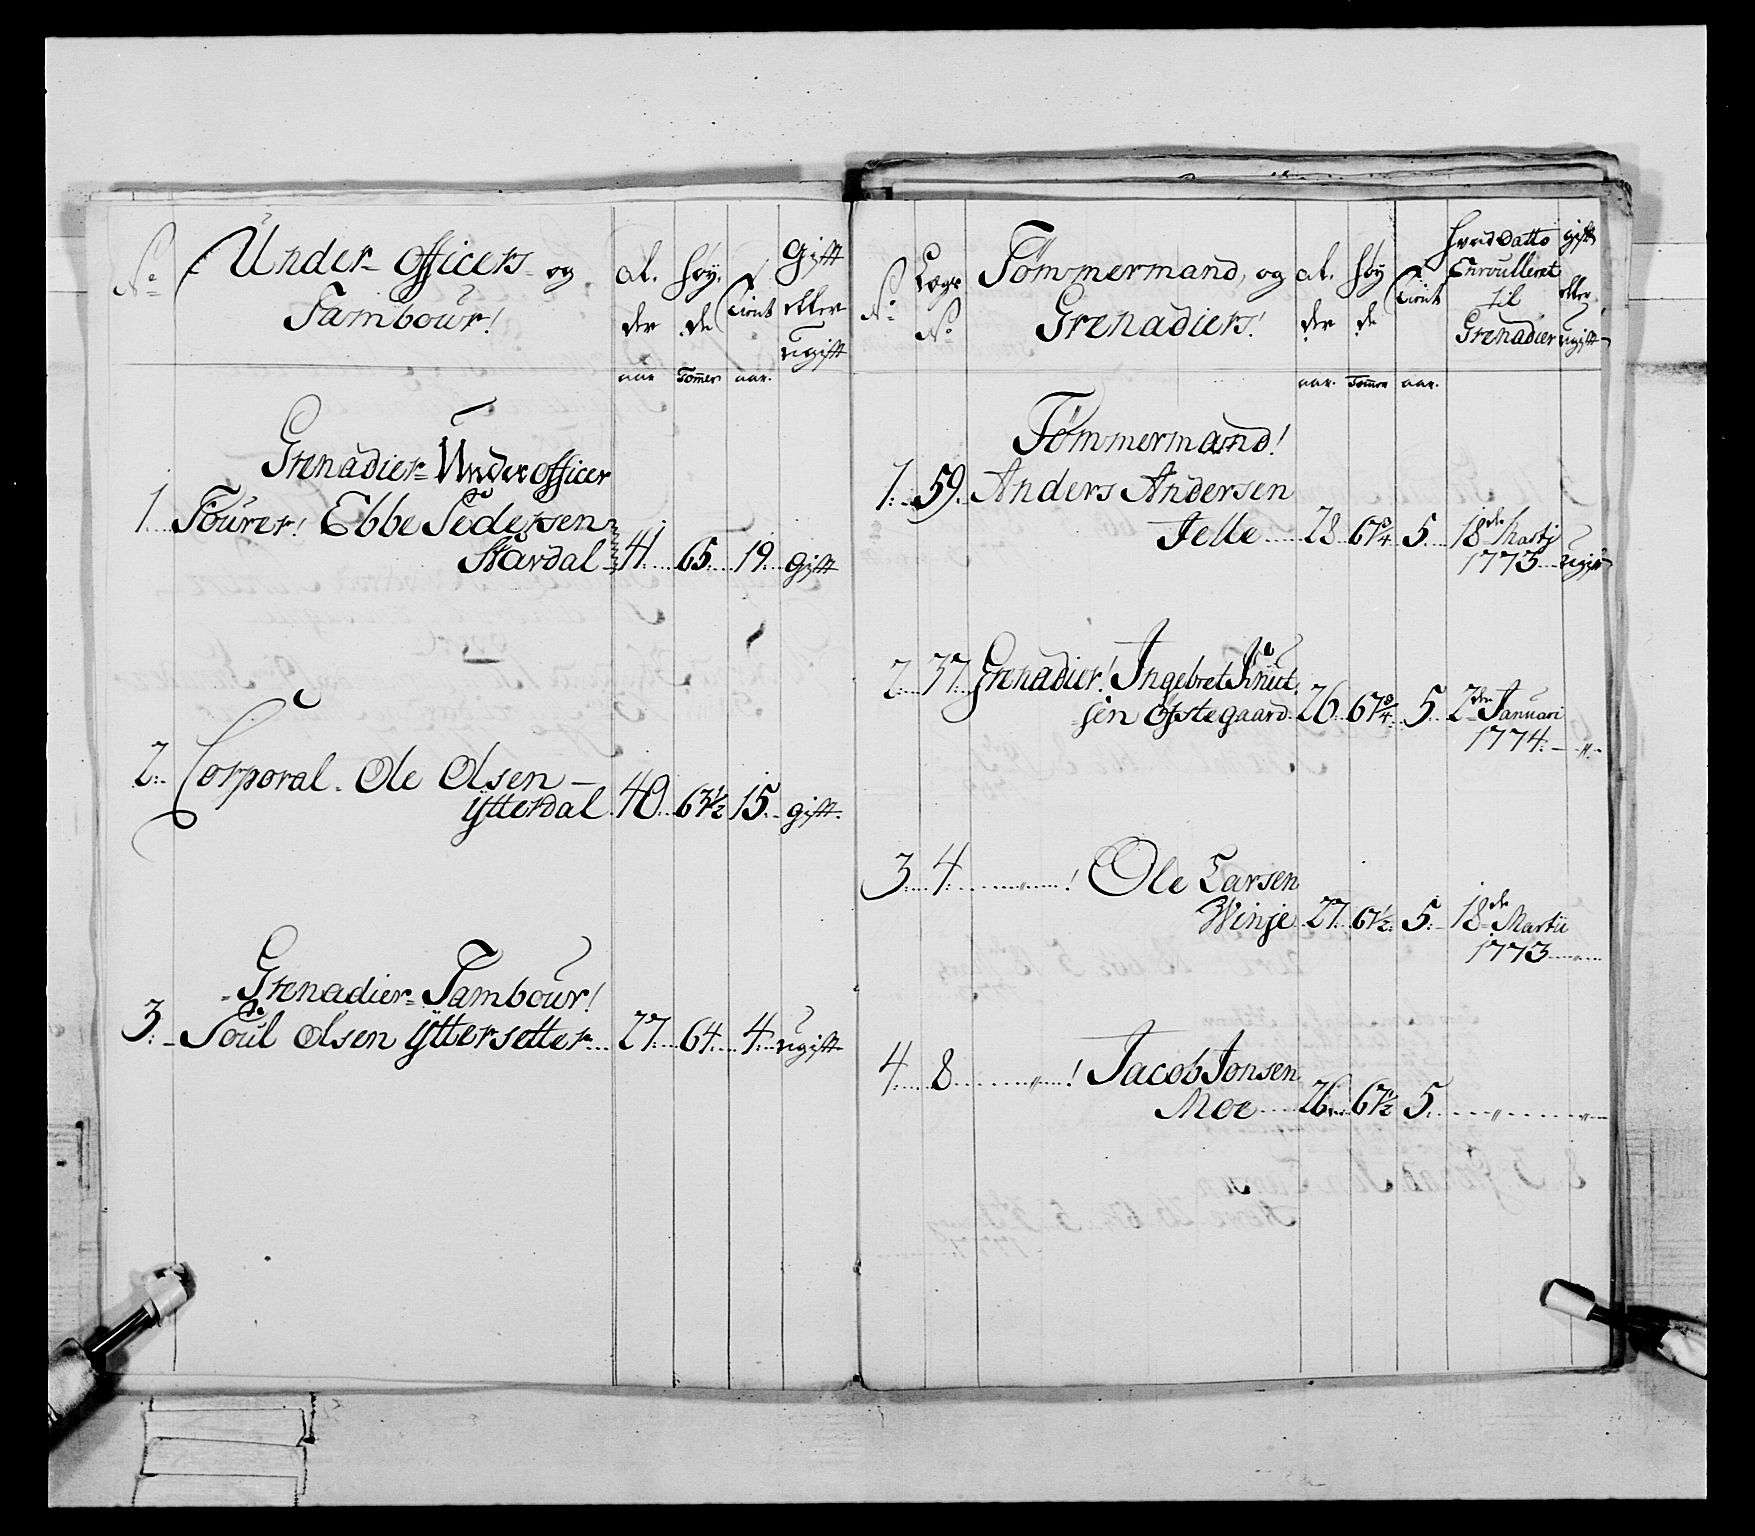 No
Under-Officers og
Tambour!
al.
der
høy.
de
Tient
Gift
eller
ugift
aar
Tommer
aar.
Grenadier-Underofficer
1. Fourer! Ebbe Pedersen
Stardal 41. 65. 19. gift
2. Corporal. Ole Olsen
Ytterdal 40. 63½ 15. gift.
Grenadier-Tambour!
3. Poul Olsen Yttersetter 27. 64. 4. ugift
No
Legs
No
Tømmermænd, og
Grenadiers!
al.
der
høy
de
Tient
hvad Datto
Enroulleret
til
Grenadier
gift
eller
ugift
aar.
Tommer
aar.
Tømmermænd!
1. 59. Anders Andersen
Jelle 28 67¾ 5. 18de Martj
1773 ugift
2. 37. Grenadier! Ingebret Knut
sen Opstegaard 26. 67¾ 5. 2den Januari
1774. "
3. 4. " ! Ole Larsen
Winje 27. 67½. 5. 18de Martii
1773
4. 8 " ! Jacob Jonsen
Moe 26. 67½ 5. " "